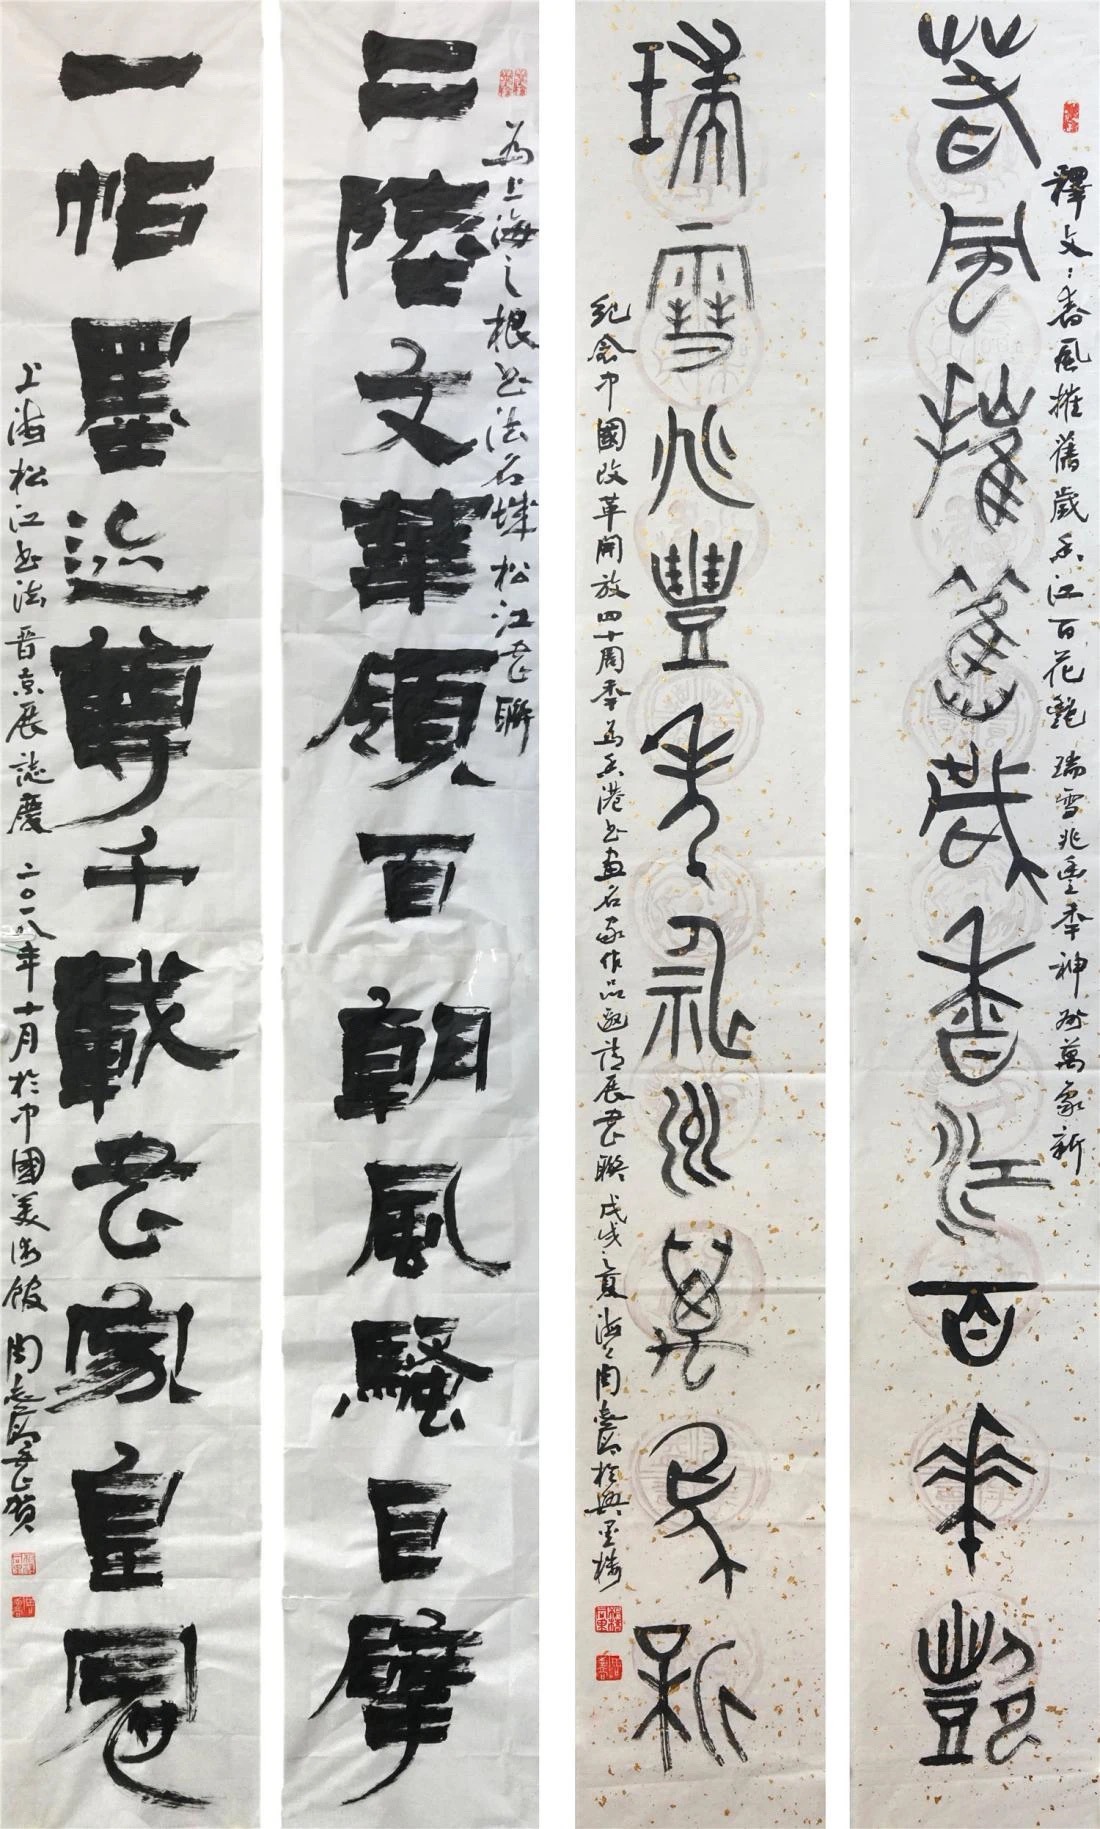 釋文：春風摧舊歲香江百花艷 瑞雪兆豐年神州萬象新
春風摧舊歲香江百花艷
瑞雪兆豐年神州萬象新
紀念中國改革開放四十周年為香港書畫名家作品邀請展書聯 戊戌之夏海上周志高於興墨樓
為上海之根書法名城松江書聯
二陸文華領百朝風騷巨擘
一帖墨迹尊千載書家皇冠
上海松江書法晉京展誌慶 二〇一八年十月於中國美術館 周志高書賀